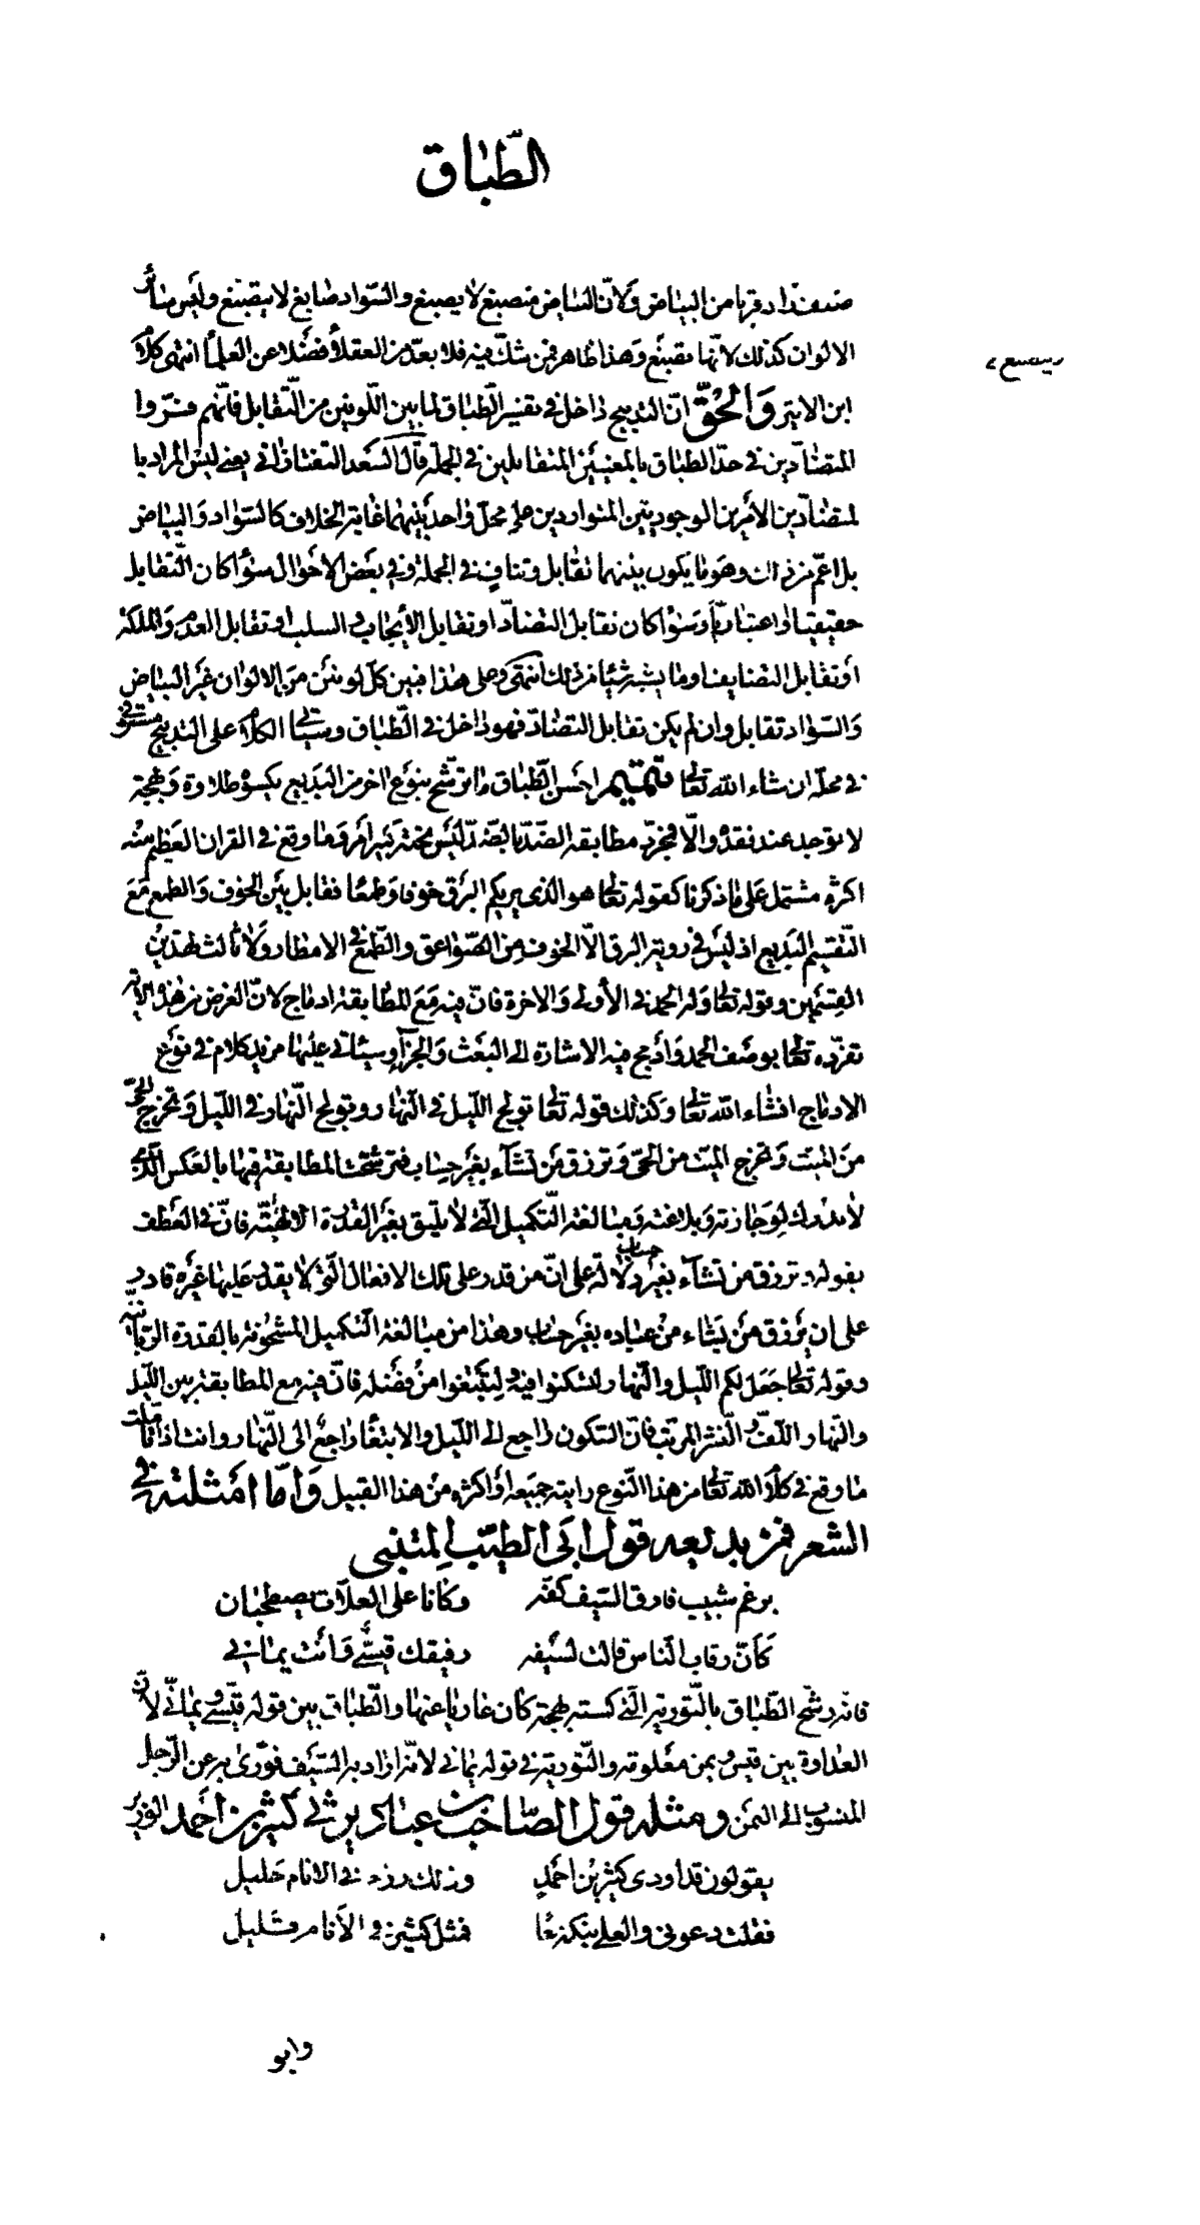 الطّباق
ضده ازداد قربا من البياض ولانّ البياض منصبغ لا يصبغ والسّواد صابغ لا ينصبغ وليس سائر
الالوان كذلك لانّها تصبغ وهذا ظاهر فمن شكّ فيه فلا يعدّ من العقلاء فضلا عن العلماء انتهى كلام
ابن الاثير والحقّ انّ التدبيج داخل في تفسير الطّباق لما بين اللّونين من التّقابل فانّهم فسّروا
المتضادّين في حدّ الطباق بالمعنيين المتقابلين في الجملة قال السّعد التفتازاني يعني ليس المراد با
لمتضادّين الأمرين الوجوديّين المتواردين على محلّ واحد بينهما غاية الخلاف كالسّواد والبياض
بل اعمّ من ذلك وهو ما يكون بينهما تقابل وتنافٍ في الجملة وفي بعض الاحوال سواء كان التّقابل
حقيقيا او اعتباريّا وسواء كان تقابل التضادّ او تقابل الأيجاب والسلب او تقابل العدم والملكة
أو تقابل التضايف او ما يشبه شيئا من ذلك انتهى وعلى هذا فبين كلّ لونين من الالوان غير البياض
والسّواد تقابل وان لم يكن تقابل التضادّ فهو داخل في الطّباق وسيأتي الكلام على التدبيج مستوفى
في محلّه ان شاء الله تعالى تتميم احسن الطّباق ما ترشّح بنوع اخر من البديع يكسوه طلاوة وبهجة
لا توجد عند فقده والّا فمجرّد مطابقة الضدّ بالضدّ ليس تحته كبير امر وما وقع في القران العظيم منه
اكثره مشتمل على ما ذكرنا كقوله تعالى هو الذي يريكم البرق خوفا وطمعا فقابل بين الخوف والطمع مع
التّقسيم البديع اذ ليس في روية البرق الّا الخوف من الصّواعق والطّمع في الامطار ولا ثالث لهذين
القسمين وقوله تعالى وله الحمد في الأولى والاخرة فانّ فيه مع المطابقة ادماج لانّ الغرض من هذه الاية
تفرّده تعالى بوصف الحمد وادمج فيه الاشارة الى البعث والجزاء وسياتي عليها مزيد كلام في نوع
الادماج انشاء الله تعالى وكذلك قوله تعالى تولج اللّيل في النّهار وتولج النّهار في اللّيل وتخرج الحيّ
من الميّت وتخرج الميّت من الحيّ وترزق من تشاء بغير حساب فترشّحت المطابقة فيها بالعكس الّذي
لا يدرك لوجازته وبلاغته ومبالغة التّكميل الّتي لا يليق بغير القدرة الالهيّة فانّ في العطف
بقوله وترزق من تشآء بغير حساب دلالة على انّ من قدر على تلك الافعال الّتي لا يقدر عليها غيره قادر
على ان يرزق من يشاء من عباده بغير حساب وهذا من مبالغة التّكميل المشحونة بالقدرة الربّانيّة
وقوله تعالى جعل لكم اللّيل والنّهار لتسكنوا فيه ولتبتغوا من فضله فانّ فيه مع المطابقة بين اللّيل
والنّهار اللّفّ والنّشر المرتّب فانّ السّكون راجع الى اللّيل والابتغاء راجع الى النّهار وانت اذا تأمّلت
ما وقع في كلام الله تعالى من هذا النّوع رايته جميعه أو اكثره من هذا القبيل وامّا امثلته في
الشعر فمن بديعه قول ابي الطيّب المتنبي
برغم شبيب فارق السّيف كفّه وكانا على العلّات يصطحبان
كأنّ رقاب النّاس قالت لسيفه رفيقك قيسيّ وانت يماني
فانّه رشّح الطّباق بالتّورية الّتي كسته بهجة كان عاريا عنها والطّباق بين قوله قيسيّ ويمانيّ لأنّ
العداوة بين قيس ويمن معلومة والتّورية في قوله يماني لانّه اراد به السّيف فورّى به عن الرّجل
المنسوب الى اليمن ومثله قول الصّاحب بن عبّاد يرثي كثير بن احمد الوزير
يقولون قد اودى كثير بن احمد وذلك رزء في الانام جليل
فقلت دعوني والعلى نبكه معًا فمثل كثير في الأنام قليل
وابو